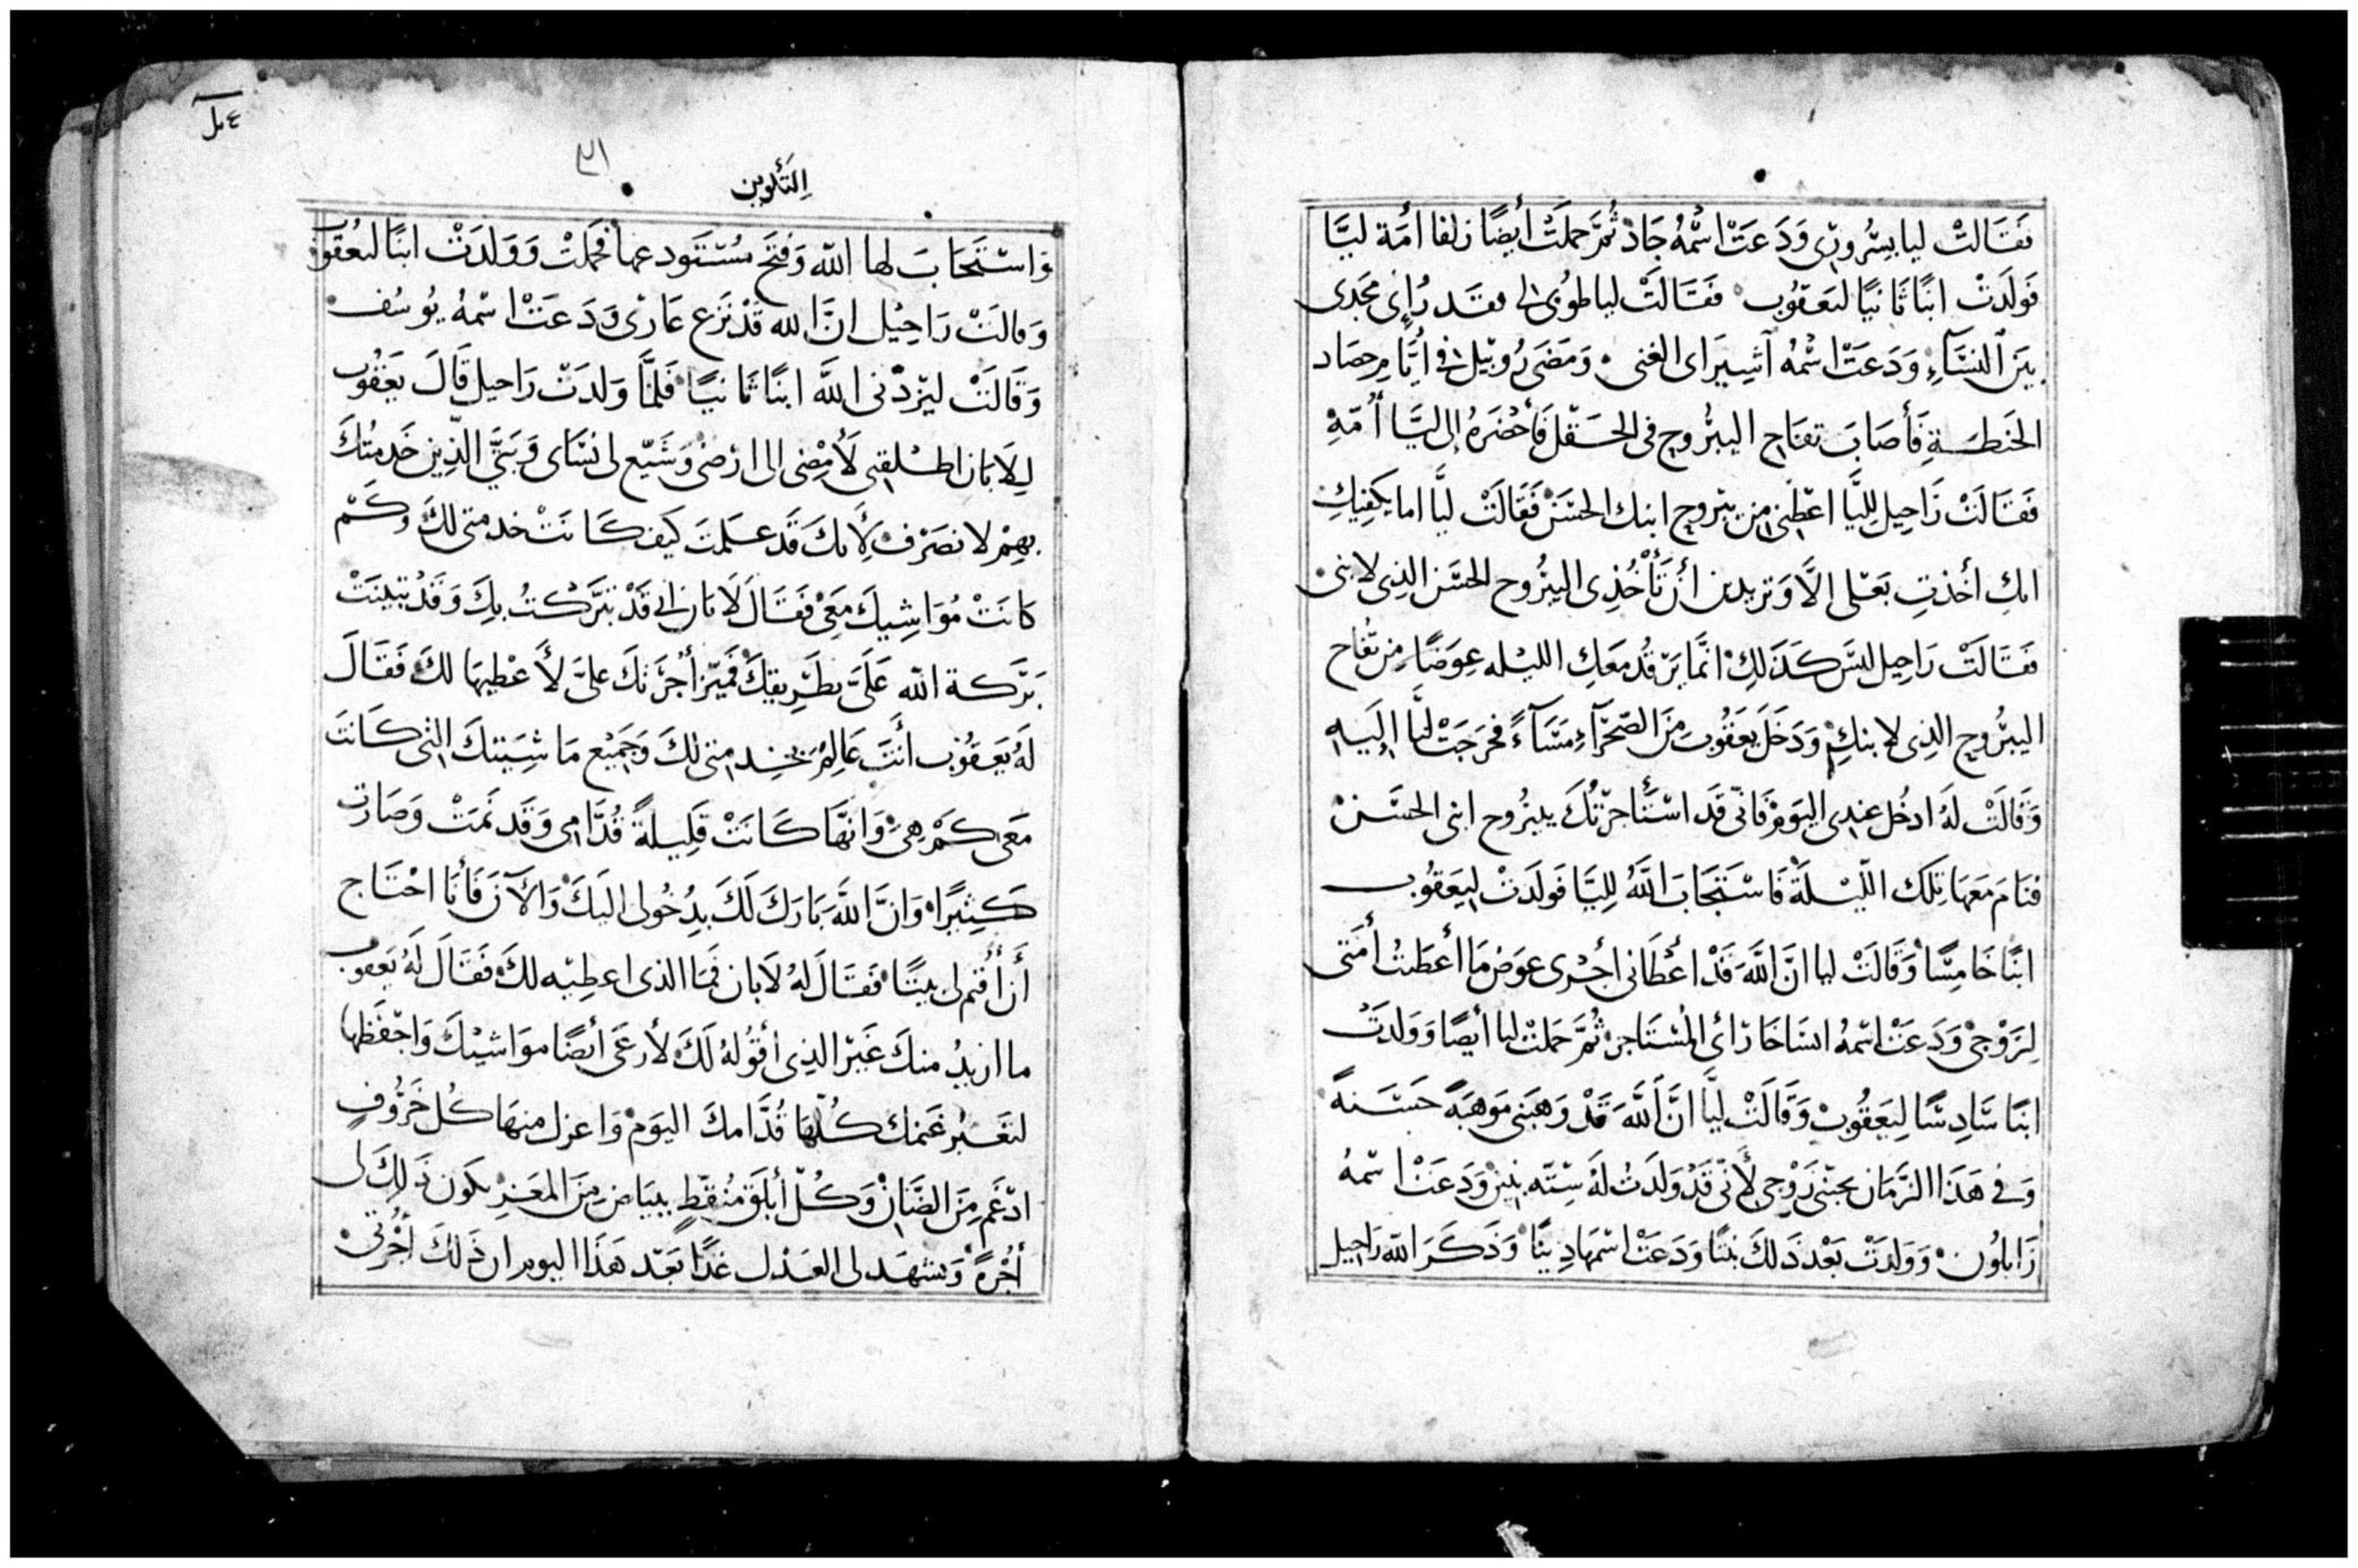 فَقَالَتْ ليا بسُّروري وَدَعَتْ اسْمُهُ جَادْ ثُمَّ حَمَلَتْ أيضًا زلفا أمَة ليَّا
فَولَدَتْ ابنًا ثَانيًا لَيَعقُوب فَقَالَتْ ليا طوُبى لى فقد رُإنى مَجْدى
بَين النسَّآءِ وَدَعَتْ اسْمُهُ آشِير اى الغنى وَمَضَى رُوبيل فى أيَّامِ حِصَاد
الحَنطَةِ فَأصَابَ تفاح اليبرُّوح فى الحَقْل فَأحْضَرَهُ إلى ليَّا أمّهِ
فَقَالَتْ رَاحِيل لِليَّا اعْطِينى مِن يبرُوح ابنك الحسَنْ فَقَالَتْ ليَّا اما يَكفِيكِ
انكِ أخذتِ بَعْلى الَّا وَتريدين أن تَأخُذِى اليبرُّوح الحسَن الذِى لابنى
فَقَالَتْ رَاحِيل ليسَ كَذَلِكِ انَّما يَرقُد مَعَكِ الليْله عِوَضًا مِن تفُاح
اليبرُّوح الذِى لابنكِ وَدَخَلَ يَعَقُوب مِنَ الصَّحْرَآءِ مَسَآءً فخرَجَتْ ليَّا إلَيهِ
وَقَالَتْ لَهُ ادخُل عِندى اليَومْ فَانّى قَد اسْتَأجَرْتُكَ بيبرُوح ابنى الحسَنْ
فنَامَ مَعهَا تِلكَ اللَّيْلَةَ فَاسْتَجَابَ اللَّهُ لِليَّا فَولَدَتْ لِيَعقُوب
ابنًا خَامِسًا وَقَالَتْ ليا انَّ اللَّهَ قَدْ اعْطَانى أجْرى عِوَضْ مَا أعطَيتُ أمَتى
لِزَوْجىْ وَدَعَتْ اسْمُهُ ايسَاخَار أى المُسْتَاجر ثُمَّ حَمَلتْ ليا أيضًا وَوَلدَتْ
ابنًا سَادِسًا لِيَعقُوبْ وَقَالَتْ ليَّا انَّ اللَّهَ قَدْ وَهَبَنى مَوْهِبَةً حَسَنةً
وَفى هَذَا الزَّمَان يحبّنى زَوْجى لأنّى قَدْ وَلَدتُ لَهُ سِتّه بَنِينْ وَدَعَتْ اسْمهُ
زَابلُونْ وَوَلدَتْ بَعْدَ ذَلكَ بنتًا وَدَعَتْ اسْمهَا دِينَا وَذَكَرَ اللّه رَاحيل
التَكْوين
وَاسْتَجَابَ لها اللّه وَفَتَحَ مُسْتَودعها فحمَلتْ وَوَلدَتْ ابنًا ليعُقوب
وَقالتْ رَاحِيْل انَّ الله قَدْ نَزَعَ عَارىْ وَدَعَتْ اسْمهُ يوُسُف
وَقَالَتْ ليَزدْنى اللَّه ابنًا ثَانيًا فَلمَّا وَلدَتْ رَاحيل قَالَ يَعَقُوب
لِلَابَان اطلْقنى لأمْضِى الى ارْضىْ وَشَيّع لى نسَاى وَبَنىَّ الَّذِين خَدمتُكَ
بهِمْ لانصَرَف لأنكَ قَد عَلمتَ كَيفَ كَانَتْ خدمتى لكَ وَكَمْ
كانَتْ مُوَاشِيكَ مَعِىْ فَقَالَ لَابَان انى قَدْ تَبَرَّكتُ بِكَ وَقَدْ تبَينَتْ
بَرَكة اللّه عَلَىَّ بطَرِيقكَ فَميّز أجْرَتكَ علىَّ لأعْطيهَا لكَ فَقَالَ
لَهُ يَعَقُوْب أنتَ عَالِمْ بخِدمتى لكَ وَجَمِيْع مَا شِيَتكَ التى كَانَتْ
مَعى كَمْ هِىْ وَانهَّا كَانَتْ قَلِيلةً قُدَّامى وَقَد نَمَتْ وَصَارت
كَثِيرًا وَانَّ اللَّهَ بَارَكَ لَكَ بدِخُولى اليَكَ وَالآنَ فَأنَا احْتَاج
أن أُقيم لى بيتًا فَقَالَ لهُ لَابان فمَا الذى اعطِيْه لكَ فَقَالَ لَهُ يَعقوب
ما اريدُ منكَ غَيْر الذِى أقُولهُ لَكَ لأرعَى أيضًا موَاشيكَ وَاحْفَظها
لتَعَبُر غَنمكَ كُلّها قُدَّامكَ اليَومْ وَاعزل منهَا كُل خَرُوفٍ
ادْغَم مِنَ الضَّانْ وَكُلّ أبلَق مُنَقّطٍ ببيَاض مِنَ المَعَز يكون ذَلِكَ لى
أجْرةً وَيشهَد لى العَدْل غدًا بَعْد هَذَا اليوم ان ذَلكَ أجْرتى